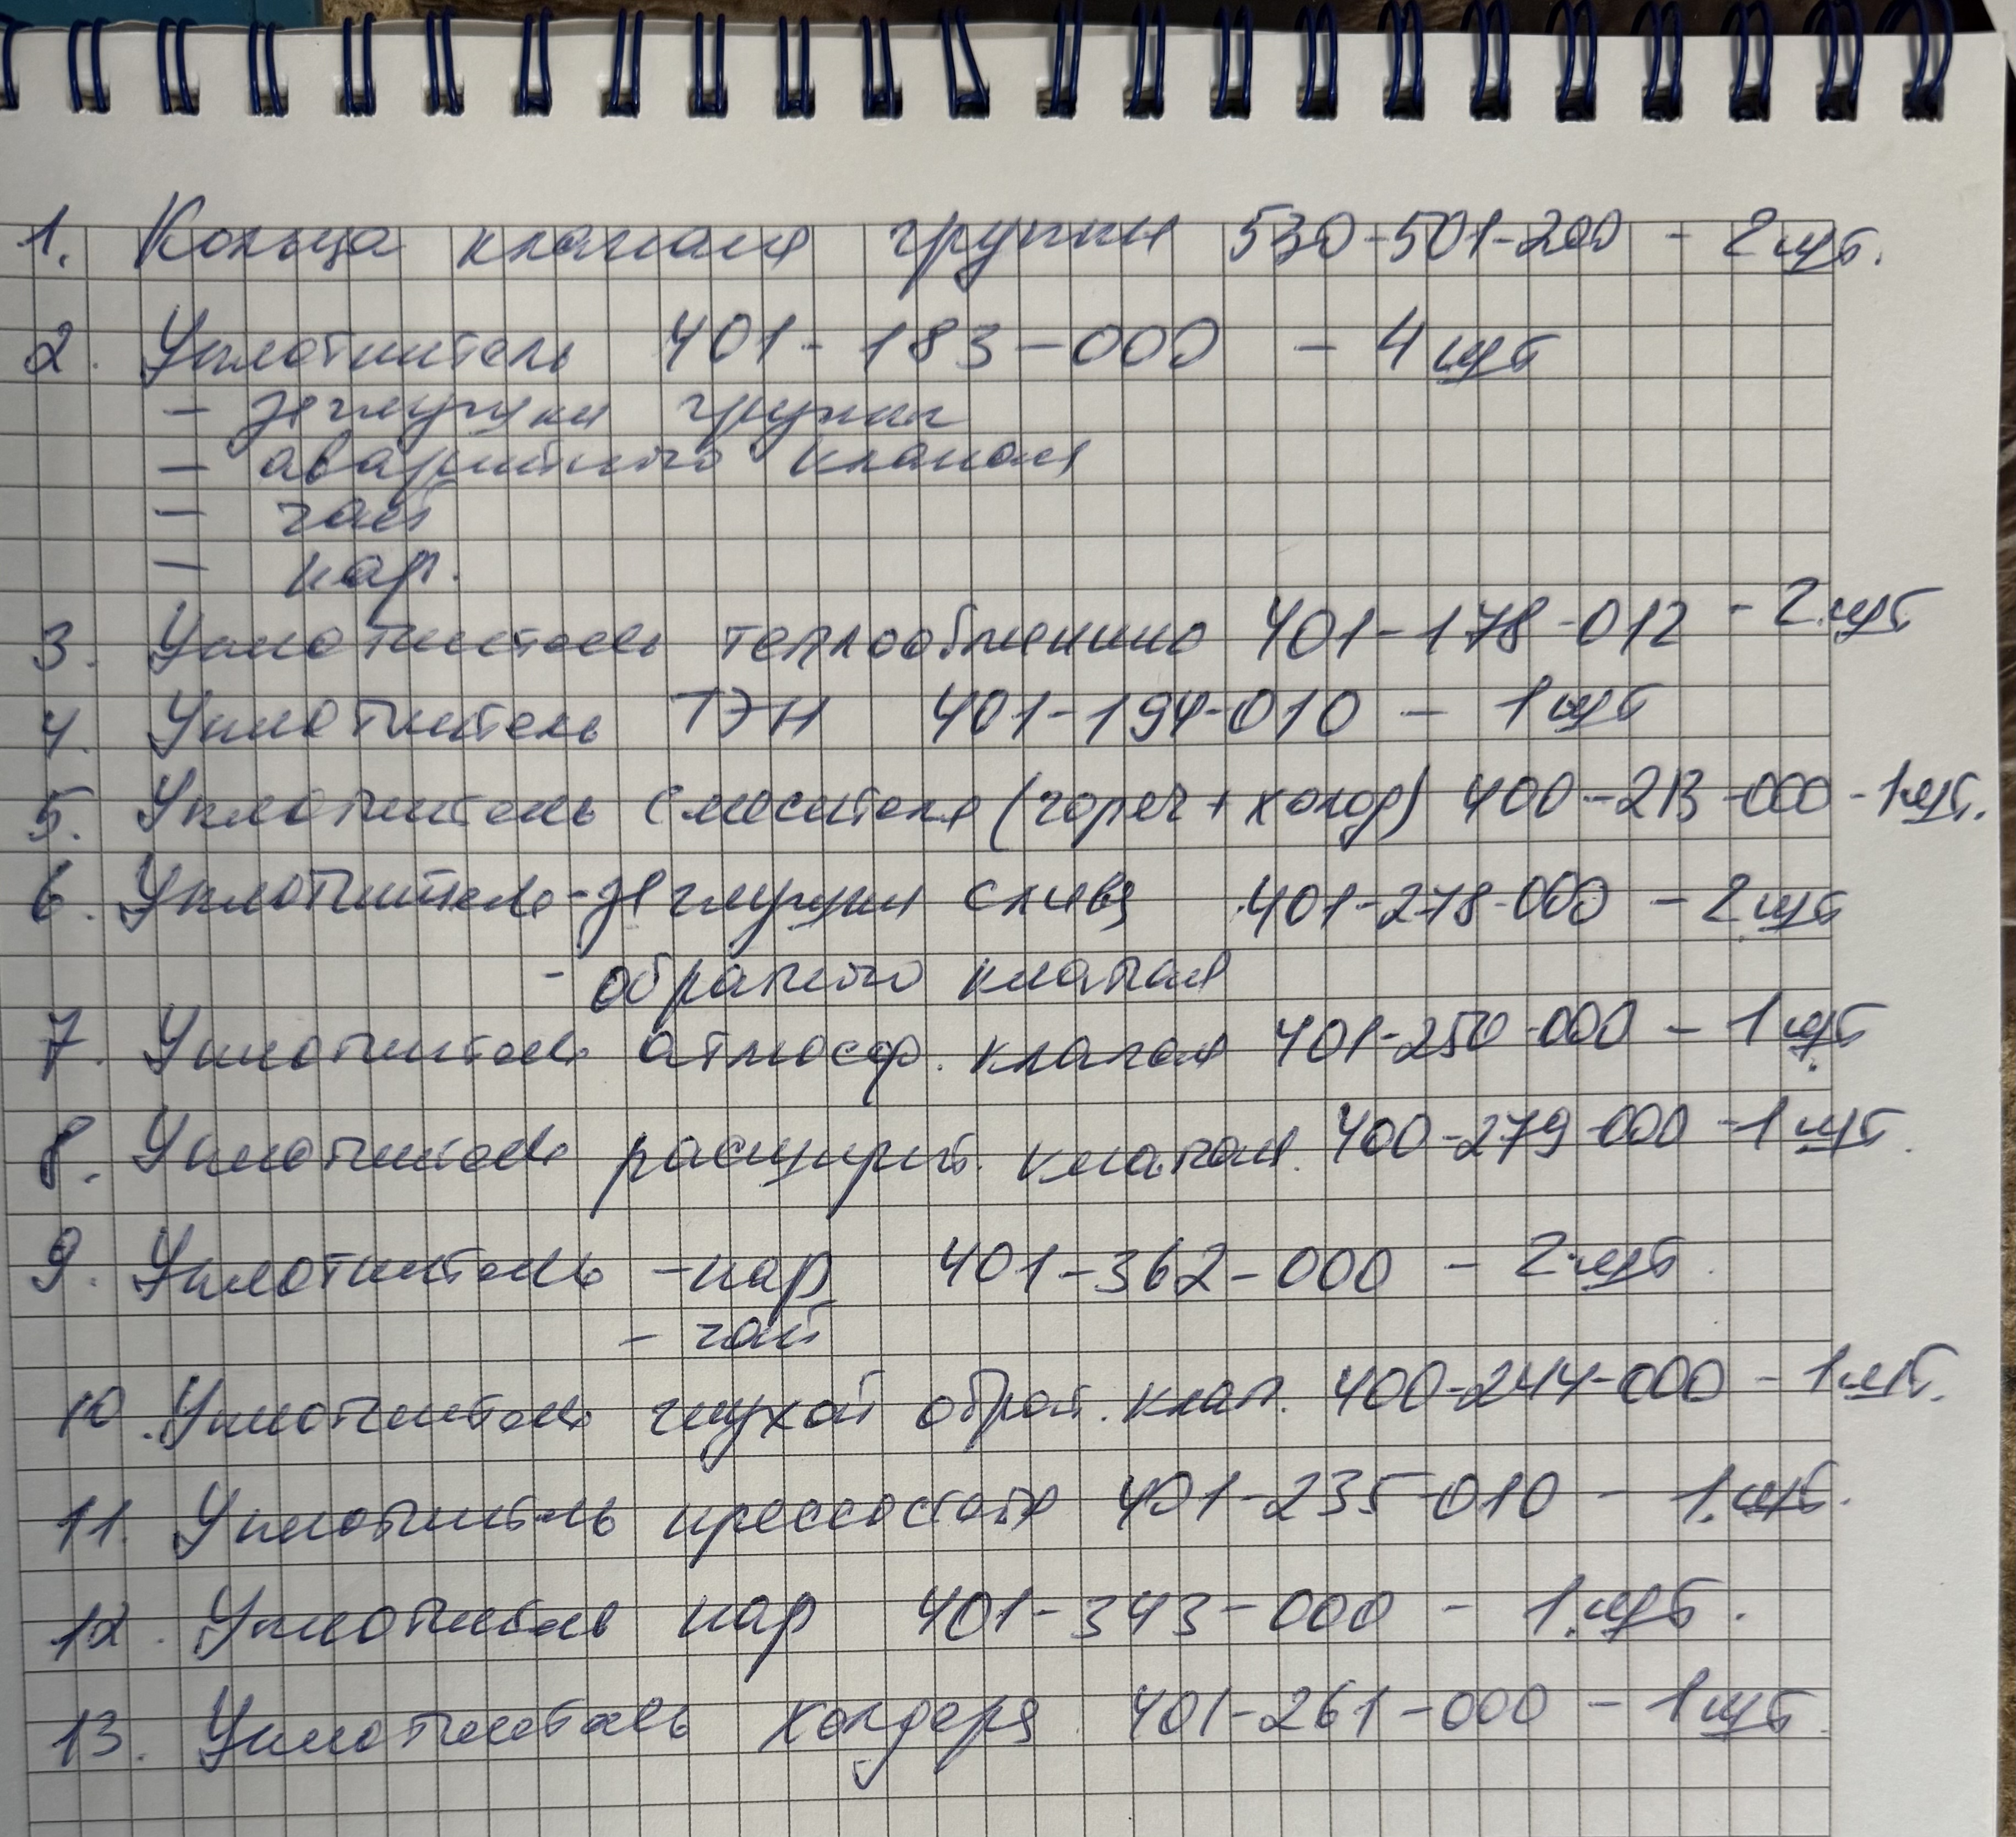 1. Кольца клапана группы 530-501-200 - 2 шт.
2. Уплотнитель 401-183-000 - 4 шт
- заглушки группы
- аварийного клапана
- чай
- пар.
3. Уплотнитель теплообменника 401-178-012 - 2 шт
4. Уплотнитель ТЭН 401-194-010 - 1 шт
5. Уплотнитель смесителя (горяч + холод) 400-213-000 - 1 шт.
6. Уплотнитель - заглушки слива 401-278-000 - 2 шт
- обратного клапана
7. Уплотнитель атмосф. клапана 401-250-000 - 1 шт
8. Уплотнитель расширит. клапана. 400-279-000 - 1 шт.
9. Уплотнитель - пар 401-362-000 - 2 шт.
- чай
10. Уплотнитель глухой обрат. клап. 400-244-000 - 1 шт.
11. Уплотнитель прессостата 401-235-010 - 1 шт.
12. Уплотнитель пар 401-343-000 - 1 шт.
13. Уплотнитель холдера 401-261-000 - 1 шт.